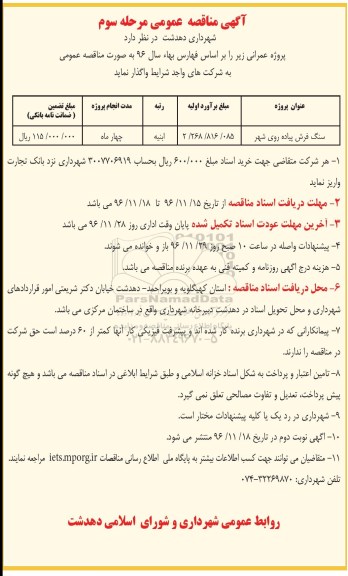 آگهی مناقصه عمومی مرحله سوم
شهرداری دهدشت در نظر دارد
پروژه عمرانی زیر را بر اساس فهارس بهاء سال ۹۶ به صورت مناقصه عمومی
به شرکت های واجد شرایط واگذار نماید
عنوان پروژه | مبلغ برآورد اولیه | رتبه | مدت انجام پروژه | مبلغ تضمین ( ضمانت نامه بانکی)
سنگ فرش پیاده روی شهر | ۲/۲۶۸/۸۱۶/۰۸۵ | ابنیه | چهار ماه | ۱۱۵/۰۰۰/۰۰۰ ریال
۱- هر شرکت متقاضی جهت خرید اسناد مبلغ ۶۰۰/۰۰۰ ریال بحساب ۳۰۰۷۷۰۶۹۱۹ شهرداری نزد بانک تجارت
واریز نماید
۲- مهلت دریافت اسناد مناقصه از تاریخ ۹۶/۱۱/۱۵ تا ۹۶/۱۱/۱۸ می باشد
۳- آخرین مهلت عودت اسناد تکمیل شده پایان وقت اداری روز ۹۶/۱۱/۲۸ می باشد
۴- پیشنهادات واصله در ساعت ۱۰ صبح روز ۹۶/۱۱/۲۹ باز و خوانده می شوند.
۵- هزینه درج آگهی روزنامه و کمیته فنی به عهده برنده مناقصه می باشد.
۶- محل دریافت اسناد مناقصه : استان کهگیلویه و بویراحمد- دهدشت خیابان دکتر شریعتی امور قراردادهای
شهرداری و محل تحویل اسناد در دهدشت دبیرخانه شهرداری واقع در ساختمان مرکزی می باشد.
۷- پیمانکارانی که در شهرداری برنده کار شده اند و پیشرفت فیزیکی کار آنها کمتر از ۶۰ درصد است حق شرکت
در مناقصه را ندارند.
۸- تامین اعتبار و پرداخت به شکل اسناد خزانه اسلامی و طبق شرایط ابلاغی در اسناد مناقصه می باشد و هیچ گونه
پیش پرداخت، تعدیل و تفاوت مصالحی تعلق نمی گیرد.
۹- شهرداری در رد یک یا کلیه پیشنهادات مختار است.
۱۰- آگهی نوبت دوم در تاریخ ۹۶/۱۱/۱۸ منتشر می شود.
۱۱- متقاضیان می توانند جهت کسب اطلاعات بیشتر به پایگاه ملی اطلاع رسانی مناقصات iets.mporg.ir مراجعه نمایند.
تلفن شهرداری: ۳۲۲۶۹۸۷۰-۰۷۴
روابط عمومی شهرداری و شورای اسلامی دهدشت
ParsNamadData
۰۲۱-۸۸۳۴۹۶۷۰-۵